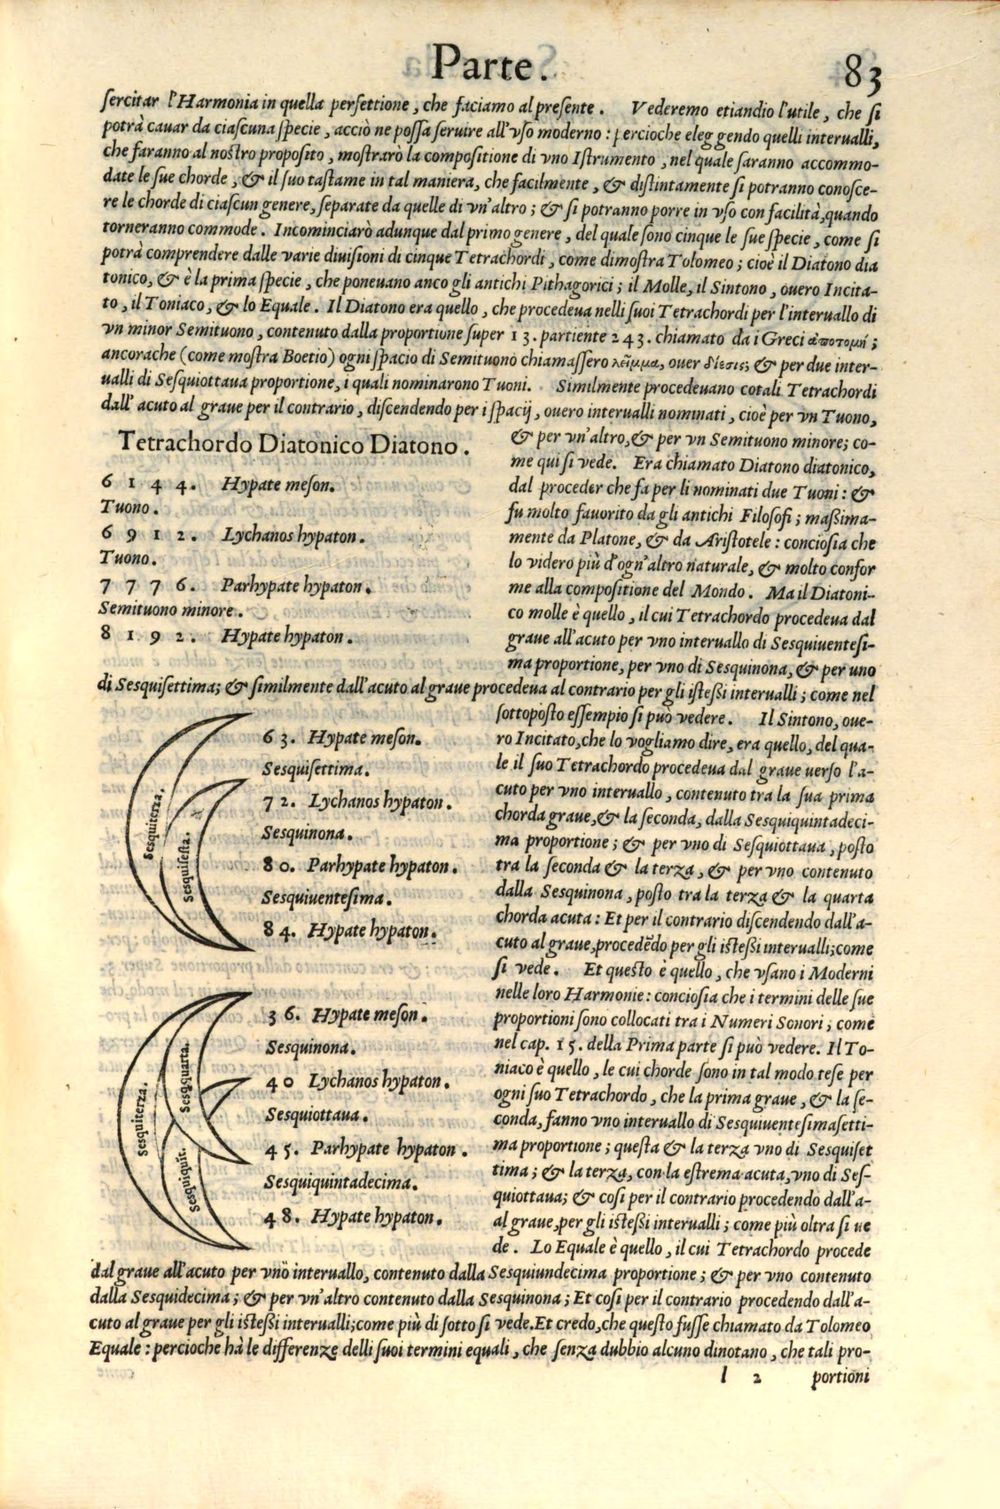 Parte.
83
sercitar l'Harmonia in quella perfettione, che faciamo al presente. Vederemo etiandio l'utile, che si
potrà cauar da ciascuna specie, acciò ne possa seruire all'vso moderno: percioche eleggendo quelli interualli,
che faranno al nostro proposito, mostrarò la compositione di vno Istrumento, nel quale saranno accommo-
date le sue chorde, & il suo tastame in tal maniera, che facilmente, & distintamente si potranno conosce-
re le chorde di ciascun genere, separate da quelle di vn'altro; & si potranno porre in vso con facilità, quando
torneranno commode. Incominciarò adunque dal primo genere, del quale sono cinque le sue specie, come si
potrà comprendere dalle varie diuisioni di cinque Tetrachordi, come dimostra Tolomeo; cioè il Diatono dia
tonico, & è la prima specie, che poneuano anco gli antichi Pithagorici; il Molle, il Sintono, ouero Incita-
to, il Toniaco, & lo Equale. Il Diatono era quello, che procedeua nelli suoi Tetrachordi per l'interuallo di
vn minor Semituono, contenuto dalla proportione super 13. partiente 243. chiamato da i Greci ἀποτομή;
ancorache (come mostra Boetio) ogni spacio di Semituono chiamassero λεῖμμα, ouer δίεσις; & per due inter-
ualli di Sesquiottaua proportione, i quali nominarono Tuoni. Similmente procedeuano cotali Tetrachordi
dall'acuto al graue per il contrario, discendendo per i spacij, ouero interualli nominati, cioè per vn Tuono,
Tetrachordo Diatonico Diatono.
6144. Hypate meson.
Tuono.
6912. Lychanos hypaton.
Tuono.
7776. Parhypate hypaton.
Semituono minore.
8192. Hypate hypaton.
& per vn'altro, & per vn Semituono minore; co-
me qui si vede. Era chiamato Diatono diatonico,
dal proceder che fa per li nominati due Tuoni: &
fu molto fauorito da gli antichi Filosofi; massima-
mente da Platone, & da Aristotele: conciosia che
lo videro più d'ogn'altro naturale, & molto confor
me alla compositione del Mondo. Ma il Diatoni-
co molle è quello, il cui Tetrachordo procedeua dal
graue all'acuto per vno interuallo di Sesquiuentesi-
ma proportione, per vno di Sesquinona, & per uno
di Sesquisettima; & similmente dall'acuto al graue procedeua al contrario per gli istessi interualli; come nel
Sesquiterza.
Sesquisesta.
63. Hypate meson.
Sesquisettima.
72. Lychanos hypaton.
Sesquinona.
80. Parhypate hypaton.
Sesquiuentesima.
84. Hypate hypaton.
Sesquiterza.
Sesqquarta.
Sesquiquīt.
36. Hypate meson.
Sesquinona.
40 Lychanos hypaton.
Sesquiottaua.
45. Parhypate hypaton.
Sesquiquintadecima.
48. Hypate hypaton.
sottoposto essempio si può vedere. Il Sintono, oue-
ro Incitato, che lo vogliamo dire, era quello, del qua-
le il suo Tetrachordo procedeua dal graue verso l'a-
cuto per vno interuallo, contenuto tra la sua prima
chorda graue, & la seconda, dalla Sesquiquintadeci-
ma proportione; & per vno di Sesquiottaua, posto
tra la seconda & la terza, & per vno contenuto
dalla Sesquinona, posto tra la terza & la quarta
chorda acuta: Et per il contrario discendendo dall'a-
cuto al graue, procedẽdo per gli istessi interualli; come
si vede. Et questo è quello, che vsano i Moderni
nelle loro Harmonie: conciosia che i termini delle sue
proportioni sono collocati tra i Numeri Sonori, come
nel cap. 15. della Prima parte si può vedere. Il To-
niaco è quello, le cui chorde sono in tal modo tese per
ogni suo Tetrachordo, che la prima graue, & la se-
conda, fanno vno interuallo di Sesquiuentesimasetti-
ma proportione; questa & la terza vno di Sesquiset
tima; & la terza, con la estrema acuta, vno di Ses-
quiottaua; & cosi per il contrario procedendo dall'a-
al graue, per gli istessi interualli; come più oltra si ue
de. Lo Equale è quello, il cui Tetrachordo procede
dal graue all'acuto per vno interuallo, contenuto dalla Sesquiundecima proportione; & per vno contenuto
dalla Sesquidecima; & per vn'altro contenuto dalla Sesquinona; Et cosi per il contrario procedendo dall'a-
cuto al graue per gli istessi interualli; come più di sotto si vede. Et credo, che questo fusse chiamato da Tolomeo
Equale: percioche hà le differenze delli suoi termini equali, che senza dubbio alcuno dinotano, che tali pro-
l 2 portioni